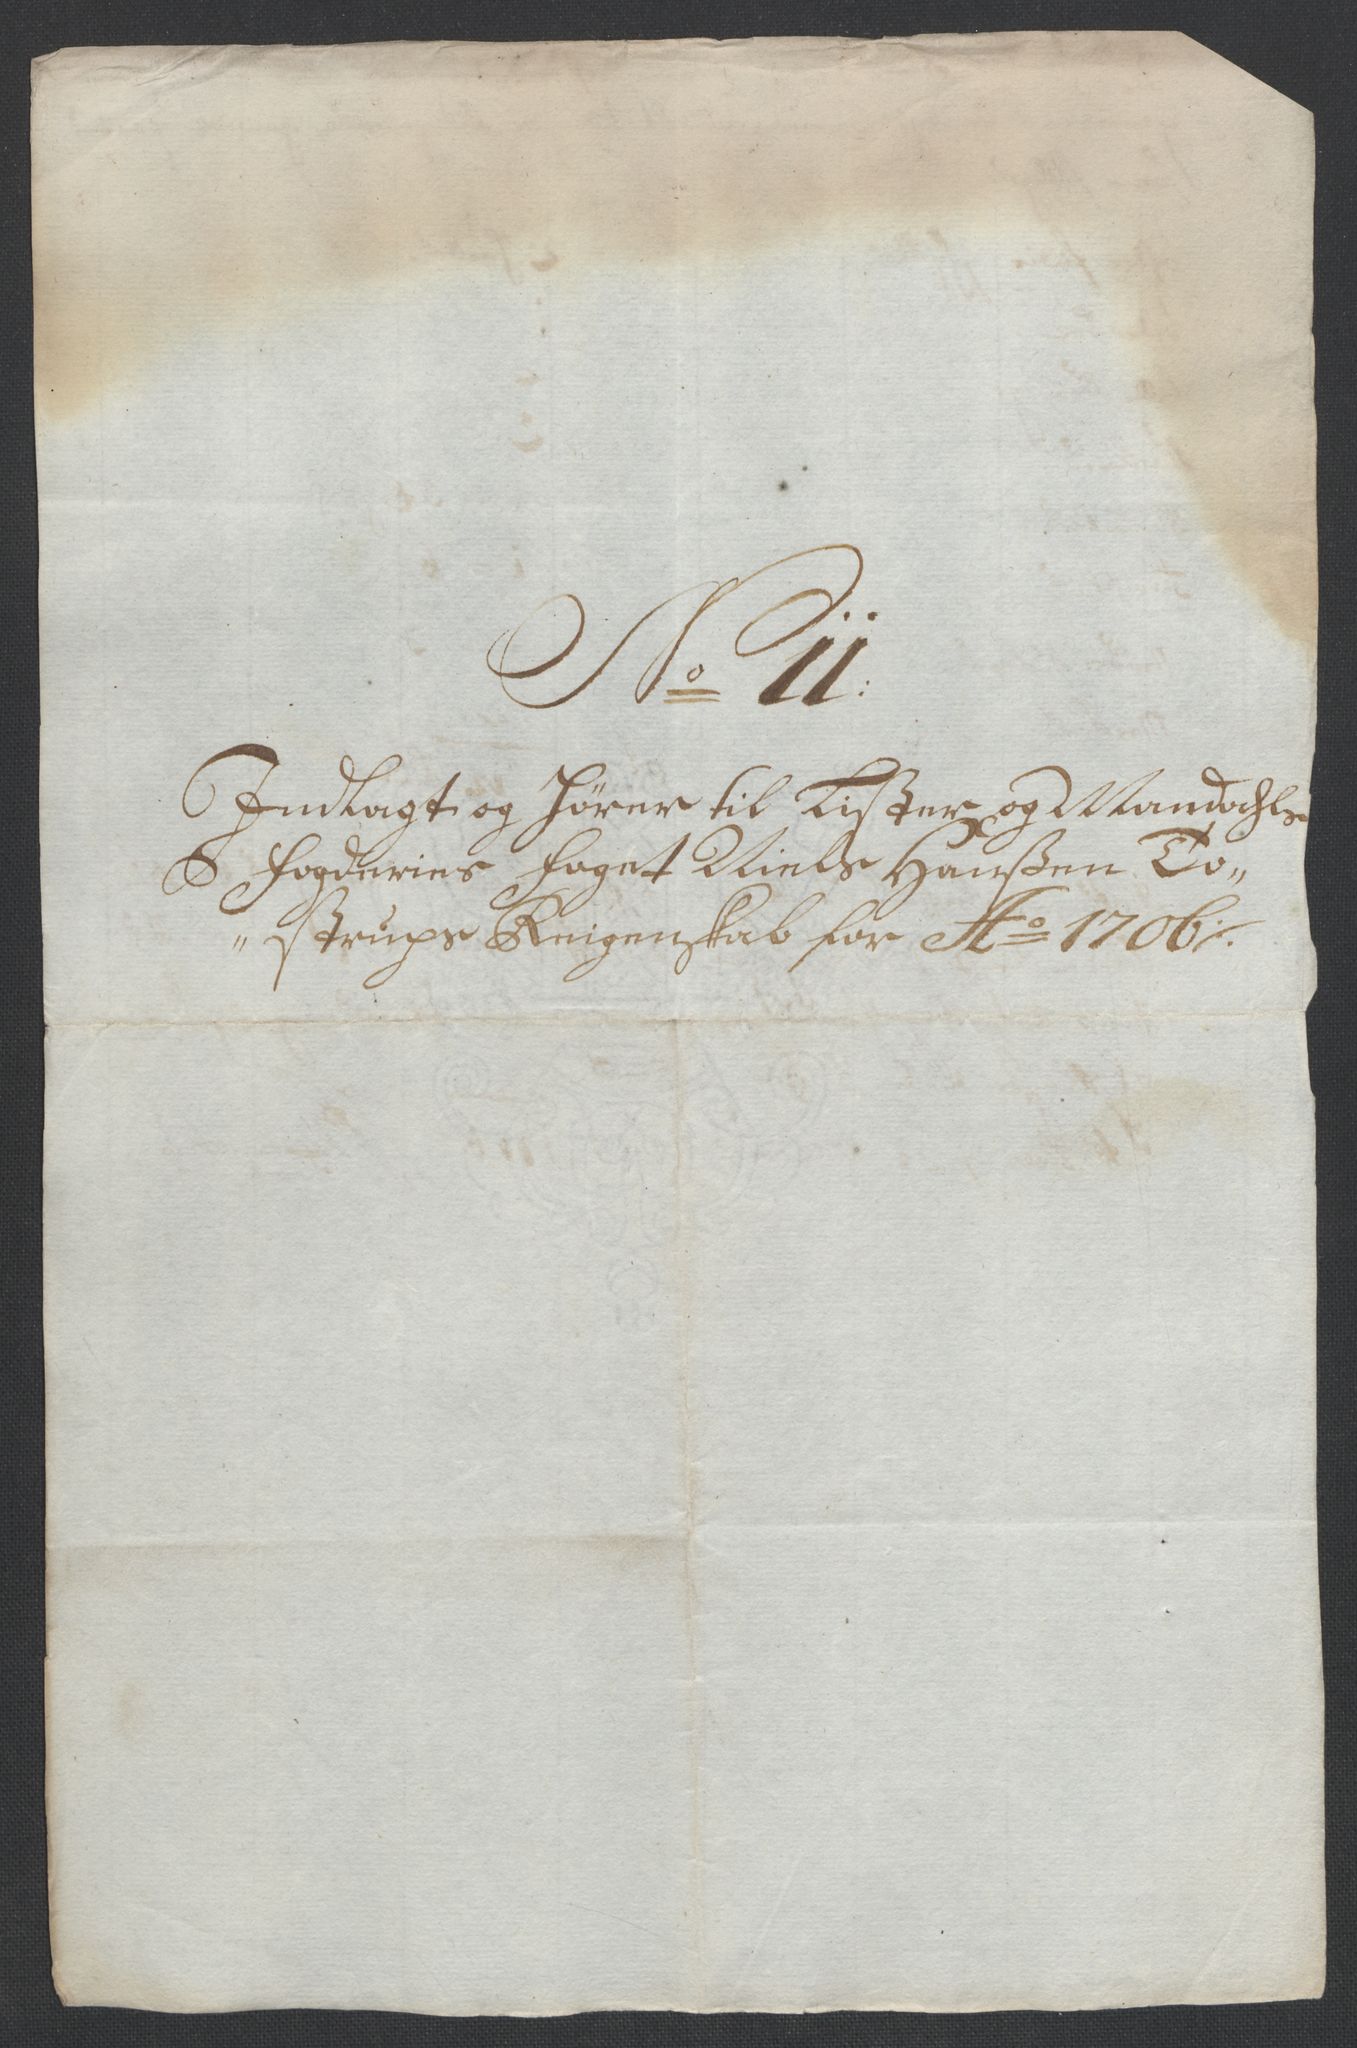 No 11:
Indlagt og hører til Lister og Mandahls
Fogderies Foget Niels Hanßen To„
„strups Reigenskab for Ao 1706